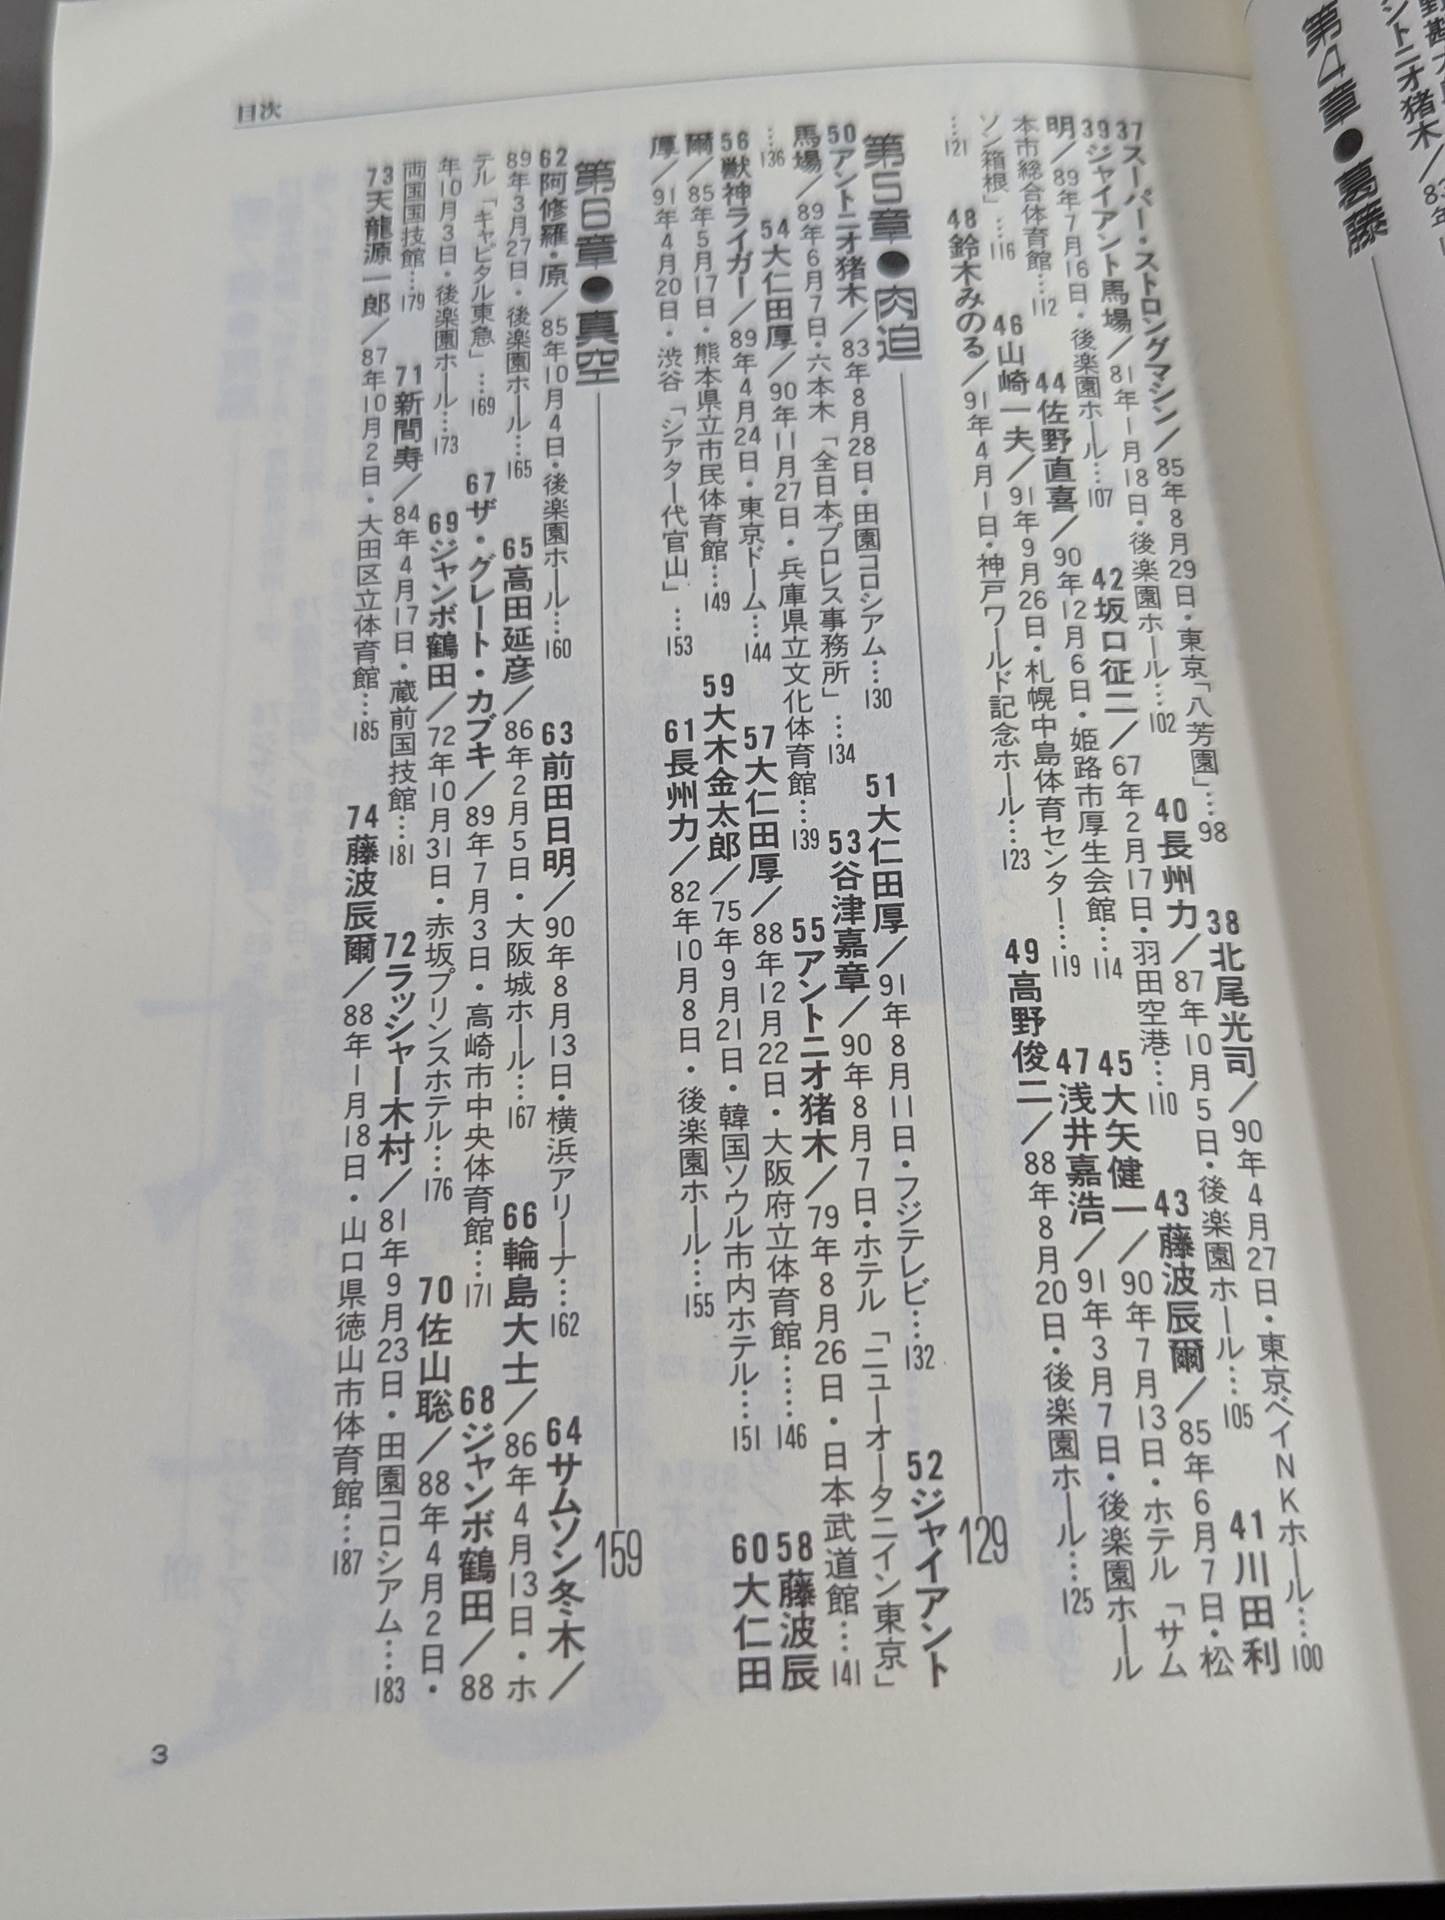 第4章●葛藤
37スーパー・ストロングマシン／85年8月29日・東京「八芳園」…98　38北尾光司／90年4月27日・東京ベイNKホール…100
39ジャイアント馬場／81年1月18日・後楽園ホール…102　40長州力／87年10月5日・後楽園ホール…105　41川田利
明／89年7月16日・後楽園ホール…107　42坂口征二／67年2月17日・羽田空港…110　43藤波辰爾／85年6月7日・松
本市総合体育館…112　44佐野直喜／90年12月6日・姫路市厚生会館…114　45大矢健一／90年7月13日・ホテル「サム
ソン箱根」…116　46山崎一夫／91年9月26日・札幌中島体育センター…119　47浅井嘉浩／91年3月7日・後楽園ホール
…121　48鈴木みのる／91年4月1日・神戸ワールド記念ホール…123　49高野俊二／88年8月20日・後楽園ホール…125
第5章●肉迫　129
50アントニオ猪木／83年8月28日・田園コロシアム…130　51大仁田厚／91年8月11日・フジテレビ…132　52ジャイアント
馬場／89年6月7日・六本木「全日本プロレス事務所」…134　53谷津嘉章／90年8月7日・ホテル「ニューオータニイン東京」
…136　54大仁田厚／90年11月27日・兵庫県立文化体育館…139　55アントニオ猪木／79年8月26日・日本武道館…141
56獣神ライガー／89年4月24日・東京ドーム…144　57大仁田厚／88年12月22日・大阪府立体育館……146　58藤波辰
爾／85年5月17日・熊本県立市民体育館…149　59大木金太郎／75年9月21日・韓国ソウル市内ホテル…151　60大仁田
厚／91年4月20日・渋谷「シアター代官山」…153　61長州力／82年10月8日・後楽園ホール…155
第6章●真空　159
62阿修羅・原／85年10月4日・後楽園ホール…160　63前田日明／90年8月13日・横浜アリーナ…162　64サムソン冬木／
89年3月27日・後楽園ホール…165　65高田延彦／86年2月5日・大阪城ホール…167　66輪島大士／86年4月13日・ホ
テル「キャピタル東急」…169　67ザ・グレート・カブキ／89年7月3日・高崎市中央体育館…171　68ジャンボ鶴田／88
年10月3日・後楽園ホール…173　69ジャンボ鶴田／72年10月31日・赤坂プリンスホテル…176　70佐山聡／88年4月2日・
両国国技館…179　71新間寿／84年4月17日・蔵前国技館…181　72ラッシャー木村／81年9月23日・田園コロシアム…183
73天龍源一郎／87年10月2日・大田区立体育館…185　74藤波辰爾／88年1月18日・山口県徳山市体育館…187
目次
3